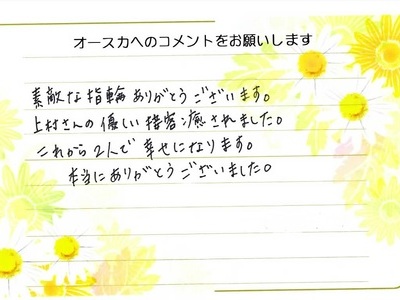 オースカへのコメントをお願いします
素敵な指輪ありがとうございます。
上村さんの優しい接客に癒されました。
これから2人で幸せになります。
本当にありがとうございました。